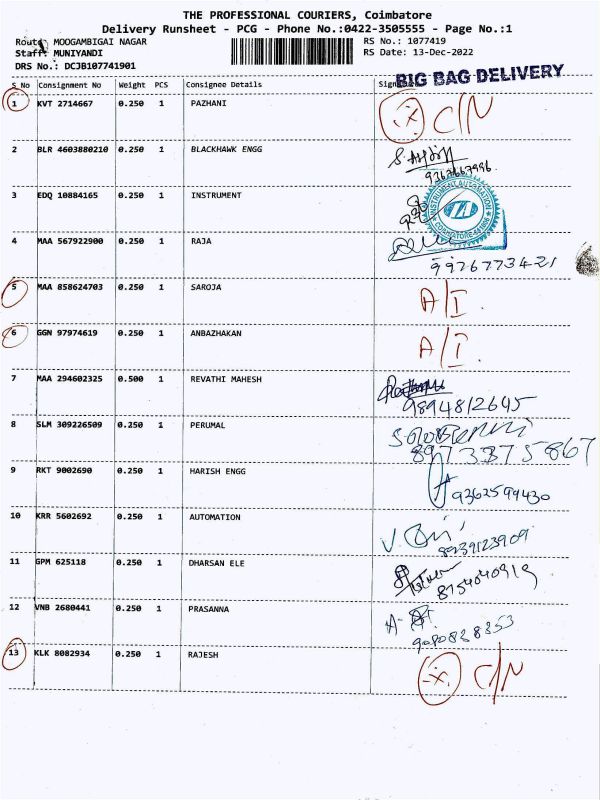 THE PROFESSIONAL COURIERS, Coimbatore
Delivery Runsheet - PCG - Phone No.:0422-3505555 - Page No.:1
Route: MOOGAMBIGAI NAGAR
RS No.: 1077419
Staff: MUNIYANDI
RS Date: 13-Dec-2022
DRS No.: DCJB107741901
BIG BAG DELIVERY
S No Consignment No Weight PCS Consignee Details
1 KVT 2714667 0.250 1 PAZHANI C/N
2 BLR 4603880210 0.250 1 BLACKHAWK ENGG
3 EDQ 10884165 0.250 1 INSTRUMENT
INSTRUMENT AUTOMATION
4 MAA 567922900 0.250 1 RAJA
9976773421
5 MAA 858624703 0.250 1 SAROJA A/I
6 GGN 97974619 0.250 1 ANBAZHAKAN A/I.
7 MAA 294602325 0.500 1 REVATHI MAHESH
9894812645
8 SLM 309226509 0.250 1 PERUMAL
8973375867
9 RKT 9002690 0.250 1 HARISH ENGG
9362599430
10 KRR 5602692 0.250 1 AUTOMATION
11 GPM 625118 0.250 1 DHARSAN ELE
8754040919
12 VNB 2680441 0.250 1 PRASANNA
9080828353
13 KLK 8082934 0.250 1 RAJESH C/N